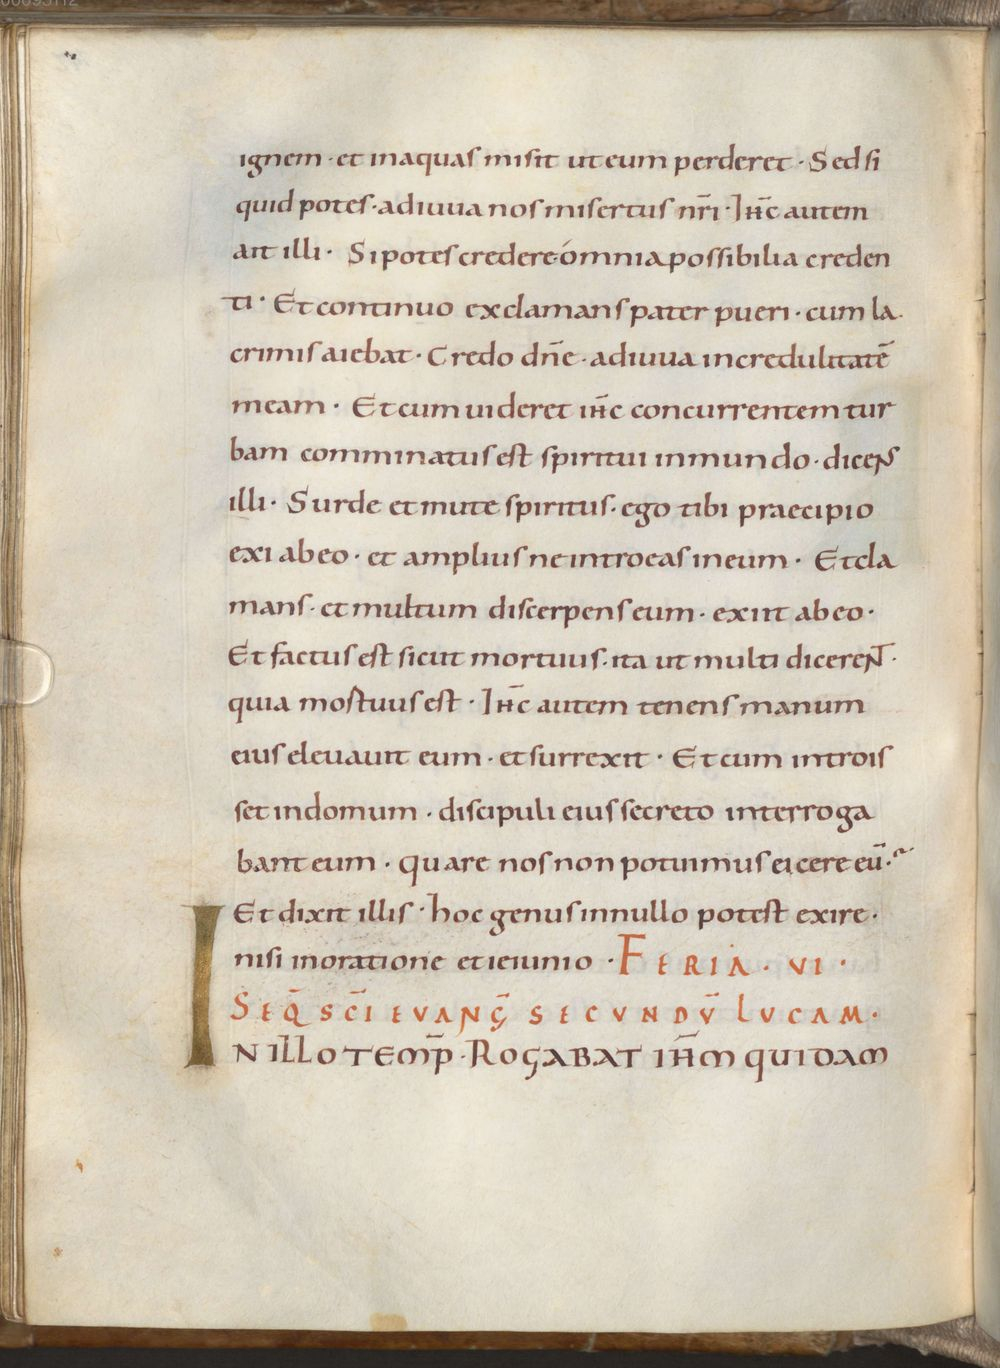 ignem · et in aquas misit ut eum perderet · Sed si
quid potes · adiuua nos misertus nr̄i · Ih̄c autem
ait illi · Si potes credere · ómnia possibilia creden
ti · Et continuo exclamans pater pueri · cum la
crimis aiebat · Credo dn̄e · adiuua incredulitatē
meam · Et cum uideret ih̄c concurrentem tur
bam comminatus est spiritui inmundo · dicens
illi · Surde et mute spiritus · ego tibi praecipio
exi ab eo · et amplius ne introeas in eum · Et cla
mans · et multum discerpens eum · exiit ab eo ·
Et factus est sicut mortuus · ita ut multi dicerent ·
quia mostuus est · Ih̄c autem tenens manum
eius eleuauit eum · et surrexit · Et cum introis
set in domum · discipuli eius secreto interroga
bant eum · quare nos non potuimus eicere eū ·
Et dixit illis · hoc genus in nullo potest exire ·
nisi in oratione et ieiunio · FERIA · VI ·
SEQ̄ SC̄I EVANḠ SECVNDV̄ LVCAM ·
IN ILLO TEMP̄ · ROGABAT IH̄M QUIDAM